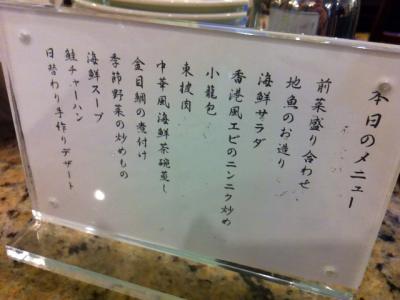 本日のメニュー
前菜盛り合わせ
地魚のお造り
海鮮サラダ
香港風エビのニンニク炒め
小龍包
東披肉
中華風海鮮茶碗蒸し
金目鯛の煮付け
季節野菜の炒めもの
海鮮スープ
鮭チャーハン
日替わり手作りデザート